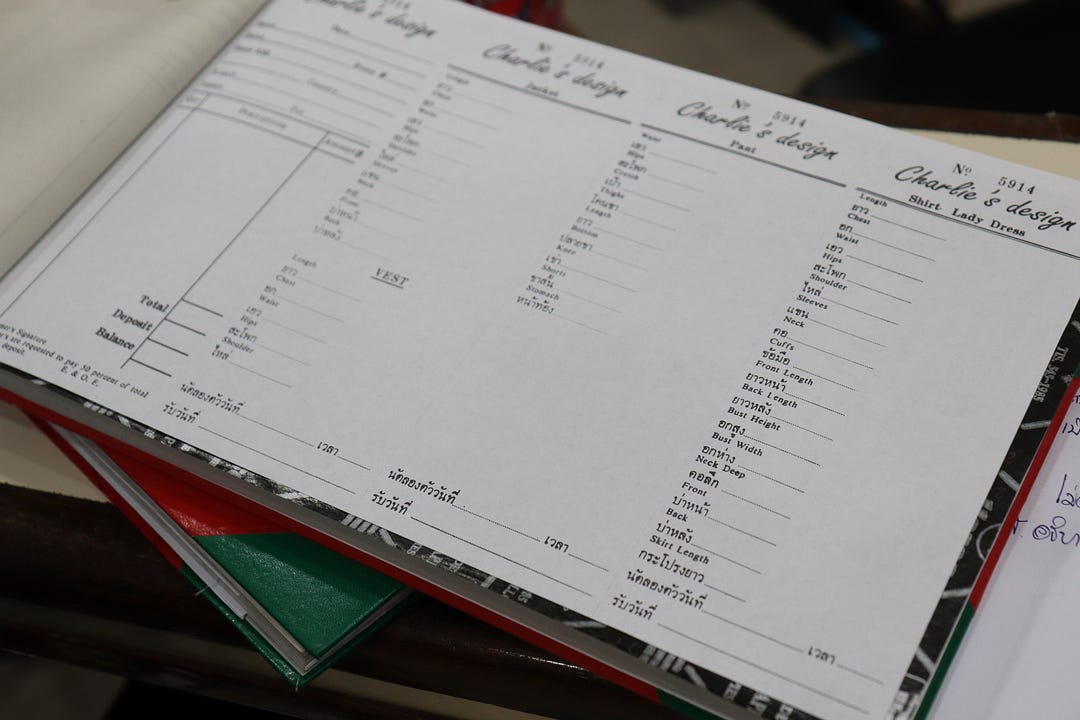 5914
Charlie's design
Total
Deposit
Balance
E. & O. E.
Nº 5914
Charlie's design
Jacket
Length
ยาว
Chest
อก
Waist
เอว
Hips
สะโพก
Shoulder
ไหล่
Sleeves
แขน
Neck
คอ
Front
บ่าหน้า
Back
บ่าหลัง
VEST
Length
ยาว
Chest
อก
Waist
เอว
Hips
สะโพก
Shoulder
ไหล่
นัดลองตัววันที่ เวลา
รับวันที่
Nº 5914
Charlie's design
Pant
Waist
เอว
Hips
สะโพก
Crotch
เป้า
Thighs
โคนขา
Length
ยาว
Bottom
ปลายขา
Knee
เข่า
Shorts
ขาสั้น
Stomach
หน้าท้อง
นัดลองตัววันที่ เวลา
รับวันที่
Nº 5914
Charlie's design
Shirt Lady Dress
Length
ยาว
Chest
อก
Waist
เอว
Hips
สะโพก
Shoulder
ไหล่
Sleeves
แขน
Neck
คอ
Cuffs
ข้อมือ
Front Length
ยาวหน้า
Back Length
ยาวหลัง
Bust Height
อกสูง
Bust Width
อกห่าง
Neck Deep
คอลึก
Front
บ่าหน้า
Back
บ่าหลัง
Skirt Length
กระโปรงยาว
นัดลองตัววันที่ เวลา
รับวันที่